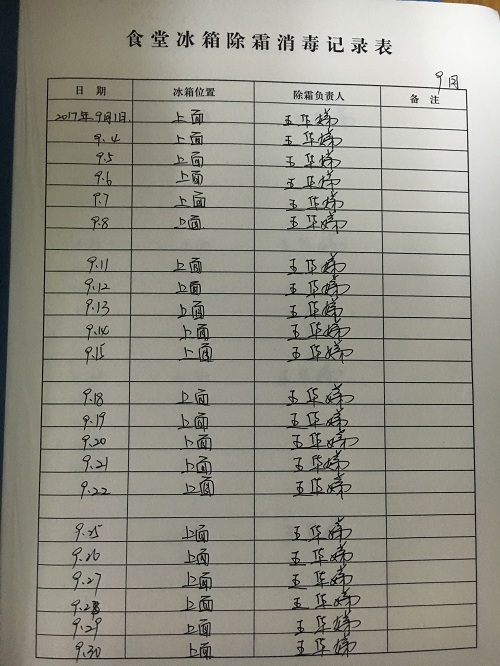 食堂冰箱除霜消毒记录表
9月
日期 冰箱位置 除霜负责人 备注
2017年9月1日. 上面 王华娣
9.4 上面 王华娣
9.5 上面 王华娣
9.6 上面 王华娣
9.7 上面 王华娣
9.8 上面 王华娣
9.11 上面 王华娣
9.12 上面 王华娣
9.13 上面 王华娣
9.14 上面 王华娣
9.15 上面 王华娣
9.18 上面 王华娣
9.19 上面 王华娣
9.20 上面 王华娣
9.21 上面 王华娣
9.22 上面 王华娣
9.25 上面 王华娣
9.26 上面 王华娣
9.27 上面 王华娣
9.28 上面 王华娣
9.29 上面 王华娣
9.30 上面 王华娣